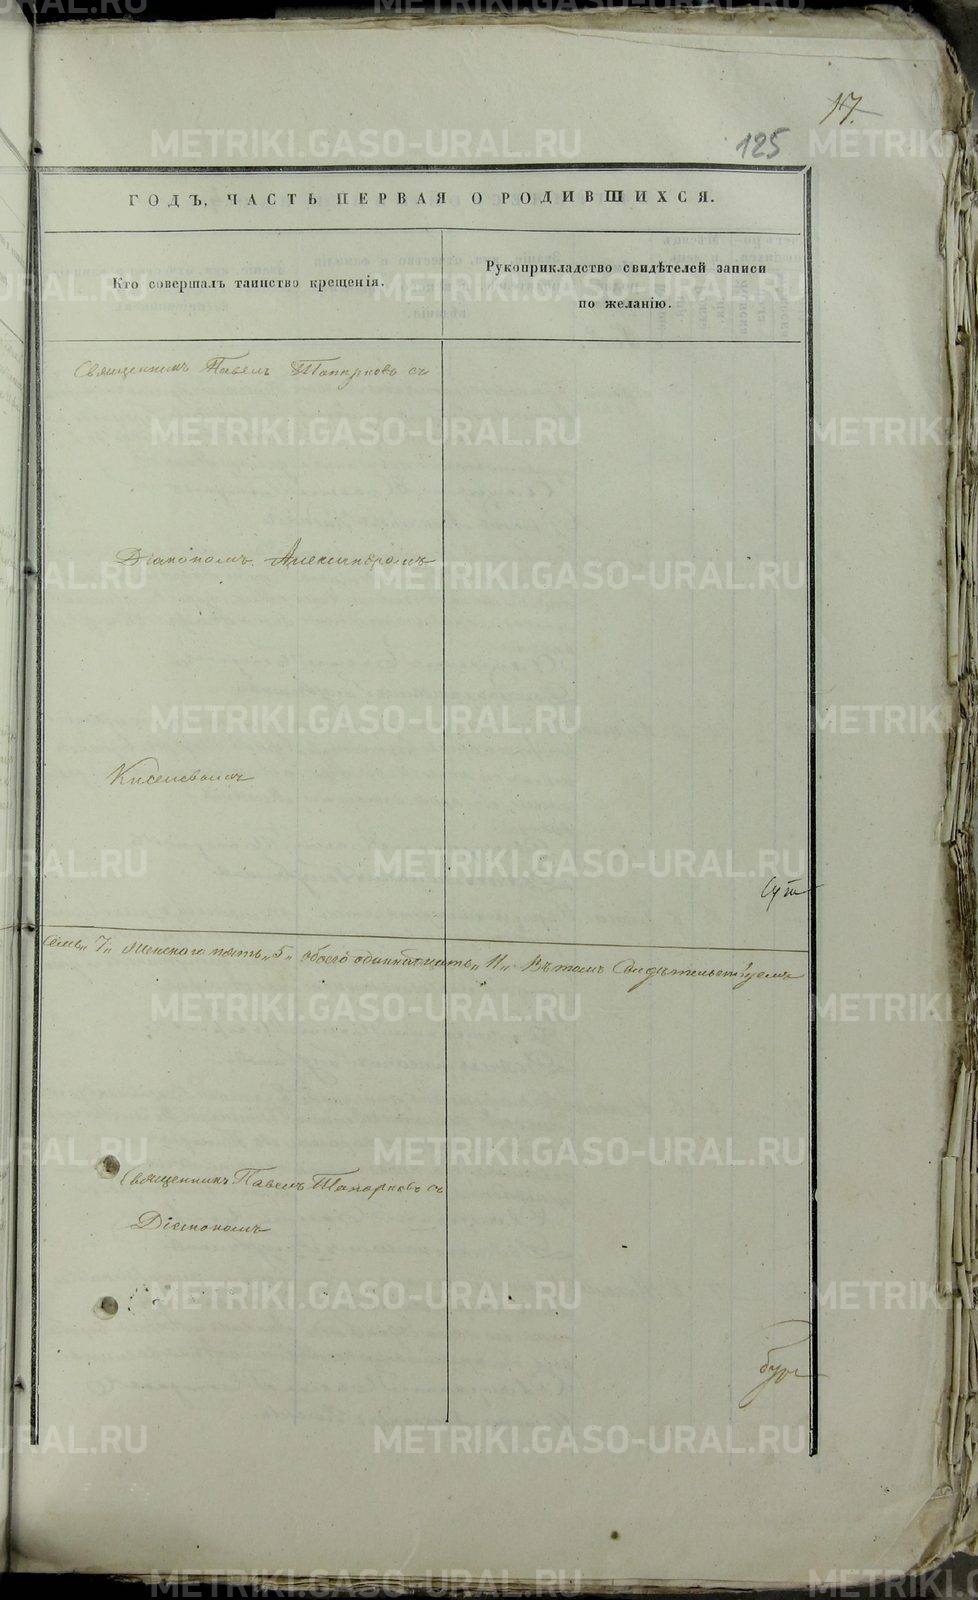 17.
125
ГОДЪ, ЧАСТЬ ПЕРВАЯ О РОДИВШИХСЯ.
Кто совершалъ таинство крещенія.
Рукоприкладство свидѣтелей записи
по желанію.
Священникъ Павелъ Топорковъ съ
Діакономъ Александромъ
Киселевымъ
семь„ 7„ Женскаго пять„ 5„ обоего одиннатцать„ 11„ Въ томъ Свидѣтельствуемъ
Священникъ Павелъ Топорковъ съ
Діакономъ
METRIKI.GASO-URAL.RU